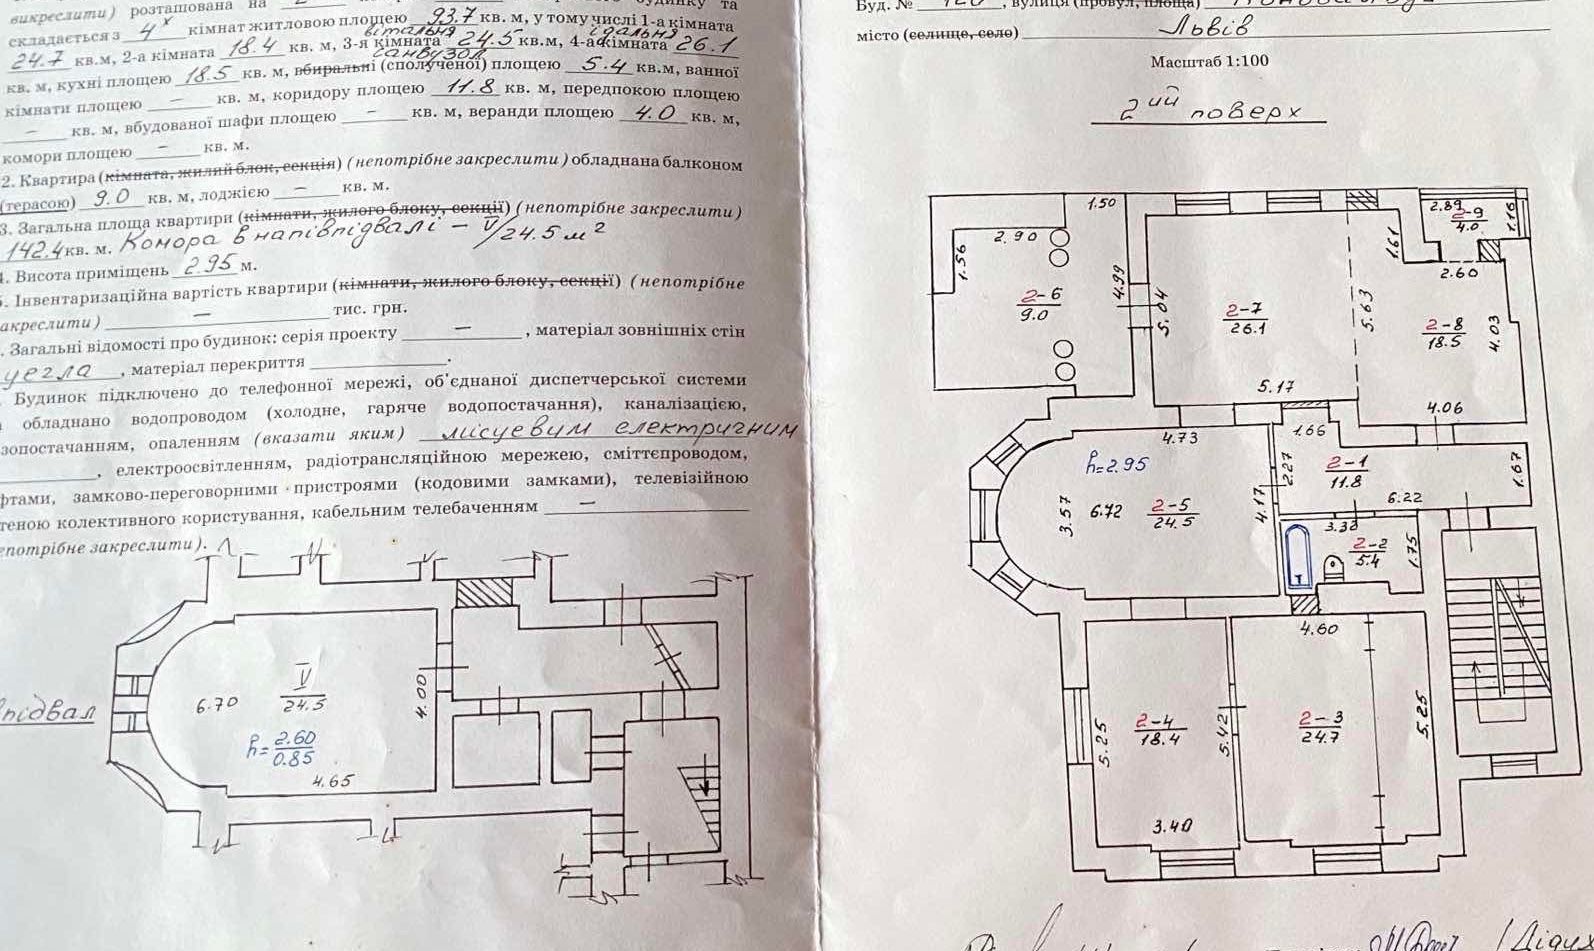 викреслити) розташована на
складається з 4х кімнат житловою площею 93.7 кв. м, у тому числі 1-а кімната
вітальня їдальня
24.7 кв.м, 2-а кімната 18.4 кв. м, 3-я кімната 24.5 кв.м, 4-а кімната 26.1
санвузол
кв. м, кухні площею 18.5 кв. м, вбиральні (сполученої) площею 5.4 кв.м, ванної
кімнати площею – кв. м, коридору площею 11.8 кв. м, передпокою площею
– кв. м, вбудованої шафи площею – кв. м, веранди площею 4.0 кв. м,
комори площею – кв. м.
2. Квартира (кімната, жилий блок, секція) (непотрібне закреслити) обладнана балконом
(терасою) 9.0 кв. м, лоджією – кв. м.
3. Загальна площа квартири (кімнати, жилого блоку, секції) (непотрібне закреслити)
142.4 кв. м. Комора в напівпідвалі – V/24.5 м²
4. Висота приміщень 2.95 м.
5. Інвентаризаційна вартість квартири (кімнати, жилого блоку, секції) (непотрібне
акреслити) – тис. грн.
. Загальні відомості про будинок: серія проекту – , матеріал зовнішніх стін
цегла , матеріал перекриття .
Будинок підключено до телефонної мережі, об'єднаної диспетчерської системи
обладнано водопроводом (холодне, гаряче водопостачання), каналізацією,
зопостачанням, опаленням (вказати яким) місцевим електричним
, електроосвітленням, радіотрансляційною мережею, сміттєпроводом,
фтами, замково-переговорними пристроями (кодовими замками), телевізійною
теною колективного користування, кабельним телебаченням –
епотрібне закреслити).
підвал
6.70
V
24.5
h= 2.60
0.85
4.00
4.65
Буд. № , вулиця (провул, площа)
місто (селище, село) Львів
Масштаб 1:100
2ий поверх
1.50
2.90
1.56
2-6
9.0
4.99
5.04
2-7
26.1
5.17
5.63
1.61
2.89
2-9
4.0
1.16
2.60
2-8
18.5
4.03
4.06
4.73
h=2.95
3.57
6.72
2-5
24.5
4.17
1.66
2.27
2-1
11.8
6.22
1.67
3.38
2-2
5.4
1.75
4.60
2-4
18.4
5.25
5.42
3.40
2-3
24.7
5.25